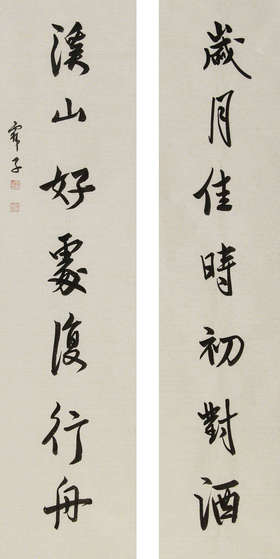 歲月佳時初對酒
溪山好處復行舟